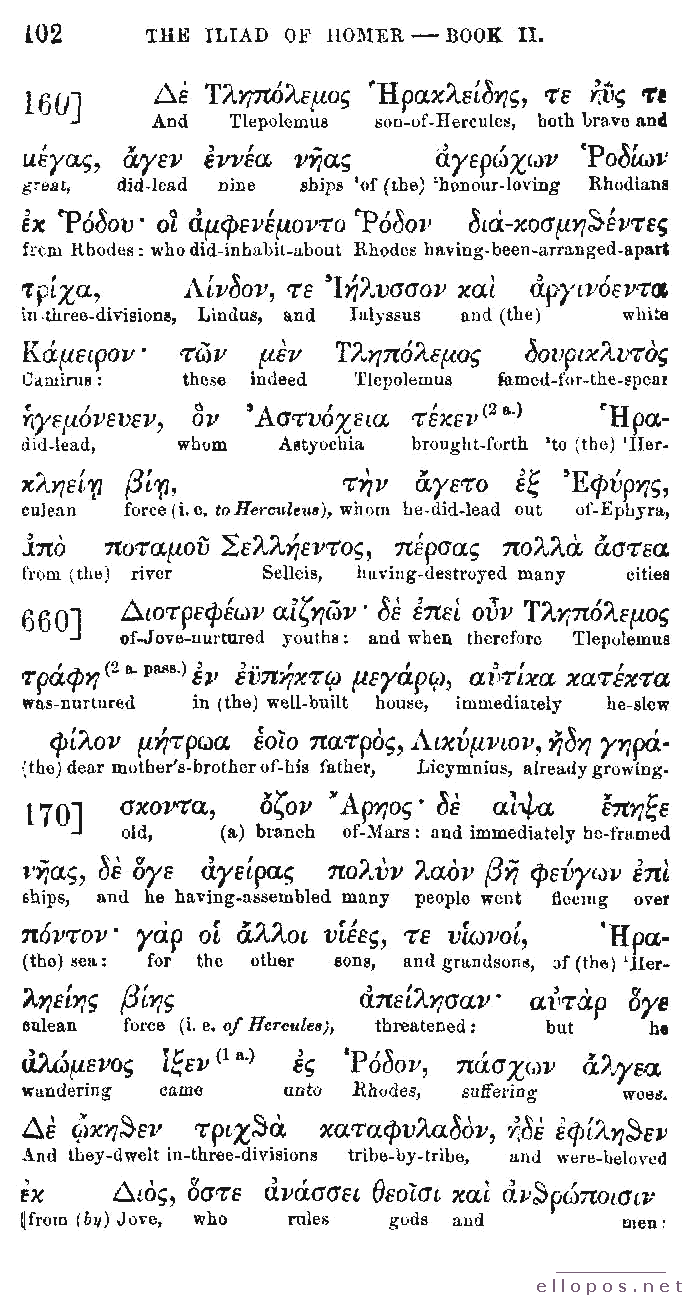 102 THE ILIAD OF HOMER — BOOK II.
160] Δὲ Τληπόλεμος Ἡρακλείδης, τε ἠῢς τε
And Tlepolemus son-of-Hercules, both brave and
μέγας, ἄγεν ἐννέα νῆας ἀγερώχων Ῥοδίων
great, did-lead nine ships ¹of (the) ²honour-loving Rhodians
ἐκ Ῥόδου· οἳ ἀμφενέμοντο Ῥόδον διὰ-κοσμηϑέντες
from Rhodes: who did-inhabit-about Rhodes having-been-arranged-apart
τρίχα, Λίνδον, τε Ἰήλυσσον καὶ ἀργινόεντα
in-three-divisions, Lindus, and Ialyssus and (the) white
Κάμειρον· τῶν μὲν Τληπόλεμος δουρικλυτὸς
Camirus: these indeed Tlepolemus famed-for-the-spear
ἡγεμόνευεν, ὃν Ἀστυόχεια τέκεν (2 a.) Ἡρα-
did-lead, whom Astyochia brought-forth ¹to (the) ¹Her-
κληείῃ βίῃ, τὴν ἄγετο ἐξ Ἐφύρης,
culean force (i. e. to Herculeus), whom he-did-lead out of-Ephyra,
ἀπὸ ποταμοῦ Σελλήεντος, πέρσας πολλὰ ἄστεα
from (the) river Selleis, having-destroyed many cities
660] Διοτρεφέων αἰζηῶν· δὲ ἐπεὶ οὖν Τληπόλεμος
of-Jove-nurtured youths: and when therefore Tlepolemus
τράφη (2 a. pass.) ἐν ἐϋπήκτῳ μεγάρῳ, αὐτίκα κατέκτα
was-nurtured in (the) well-built house, immediately he-slew
φίλον μήτρωα ἑοῖο πατρὸς, Λικύμνιον, ἤδη γηρά-
(the) dear mother's-brother of-his father, Licymnius, already growing-
170] σκοντα, ὄζον Ἄρηος· δὲ αἶψα ἔπηξε
old, (a) branch of-Mars: and immediately he-framed
νῆας, δὲ ὅγε ἀγείρας πολὺν λαὸν βῆ φεύγων ἐπὶ
ships, and he having-assembled many people went fleeing over
πόντον· γὰρ οἱ ἄλλοι υἱέες, τε υἱωνοί, Ἡρα-
(the) sea: for the other sons, and grandsons, of (the) ¹Her-
ληείης βίης ἀπείλησαν· αὐτὰρ ὅγε
culean force (i. e. of Hercules), threatened: but he
ἀλώμενος ἷξεν (1 a.) ἐς Ῥόδον, πάσχων ἄλγεα
wandering came unto Rhodes, suffering woes.
Δὲ ᾤκηϑεν τριχϑὰ καταφυλαδὸν, ἠδὲ ἐφίληϑεν
And they-dwelt in-three-divisions tribe-by-tribe, and were-beloved
ἐκ Διὸς, ὅστε ἀνάσσει θεοῖσι καὶ ἀνϑρώποισιν
from (by) Jove, who rules gods and men:
ellopos.net